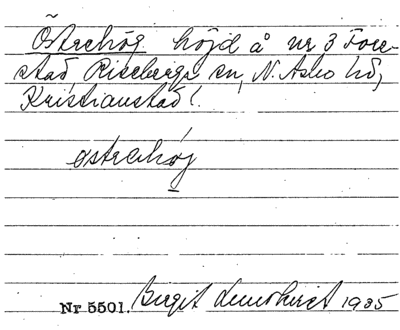 Östrehög höjd å nr 3 Fore-
stad, Riseberga sn, N. Åsbo hd,
Kristianstad l.
östrahǿj
Nr 5501. Birgit 1935